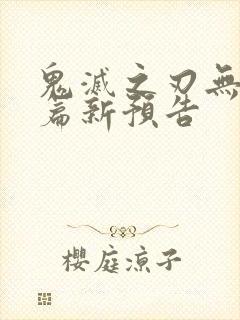 鬼滅之刃無
篇新預告
櫻庭涼子